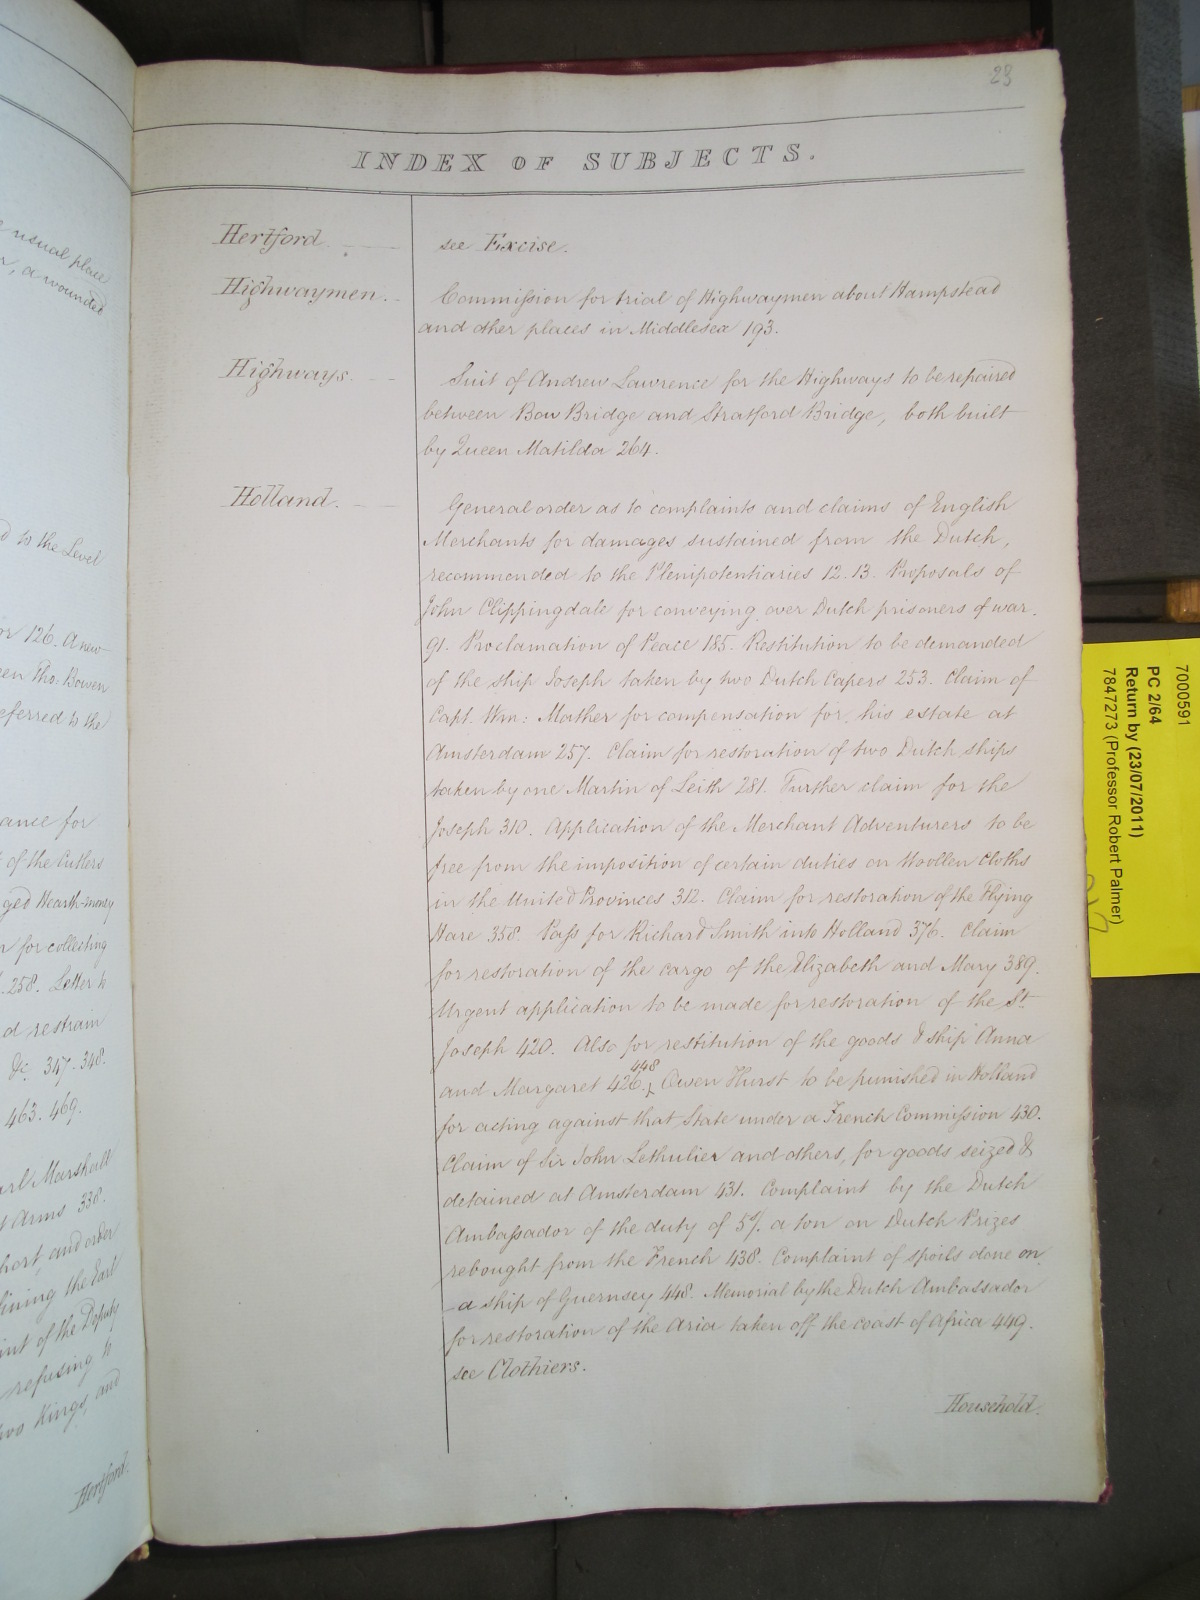 23
INDEX OF SUBJECTS.
Hertford
see Excise.
Highwaymen.
Commission for trial of Highwaymen about Hampstead
and other places in Middlesex 193.
Highways.
Suit of Andrew Lawrence for the Highways to be repaired
between Bow Bridge and Stratford Bridge, both built
by Queen Matilda 264.
Holland.
General order as to complaints and claims of English
Merchants for damages sustained from the Dutch,
recommended to the Plenipotentiaries 12. 13. Proposals of
John Clippingdale for conveying over Dutch prisoners of war.
91. Proclamation of Peace 185. Restitution to be demanded
of the ship Joseph taken by two Dutch Capers 253. Claim of
Capt. Wm: Mather for compensation for his estate at
Amsterdam 257. Claim for restoration of two Dutch ships
taken by one Martin of Leith 281. Further claim for the
Joseph 310. Application of the Merchant Adventurers to be
free from the imposition of certain duties on Woollen Cloths
in the United Provinces 312. Claim for restoration of the Flying
Hare 358. Pass for Richard Smith into Holland 376. Claim
for restoration of the cargo of the Elizabeth and Mary 389.
Urgent application to be made for restoration of the St.
Joseph 420. Also for restitution of the goods & ship Anna
448
and Margaret 426. Owen Hurst to be punished in Holland
for acting against that State under a French Commission 430.
Claim of Sir John Lethulier and others, for goods seized &
detained at Amsterdam 431. Complaint by the Dutch
Ambassador of the duty of 5/. a ton on Dutch Prizes
rebought from the French 438. Complaint of spoils done on
a ship of Guernsey 448. Memorial by the Dutch Ambassador
for restoration of the Aria taken off the coast of Africa 449.
see Clothiers.
Household.
usual place
r, a wounded
d to the Level
or 126. A new
een Tho: Bowen
eferred to the
ance for
of the Cutlers
ged Hearth-money
n for collecting
258. Letter to
d restrain
&c 347. 348.
463. 469.
arl Marshall
t Arms 338.
hort, and order
fining the Earl
int of the Deputy
refusing to
two Kings, and
Hertford.
7000591
PC 2/64
Return by (23/07/2011)
7847273 (Professor Robert Palmer)